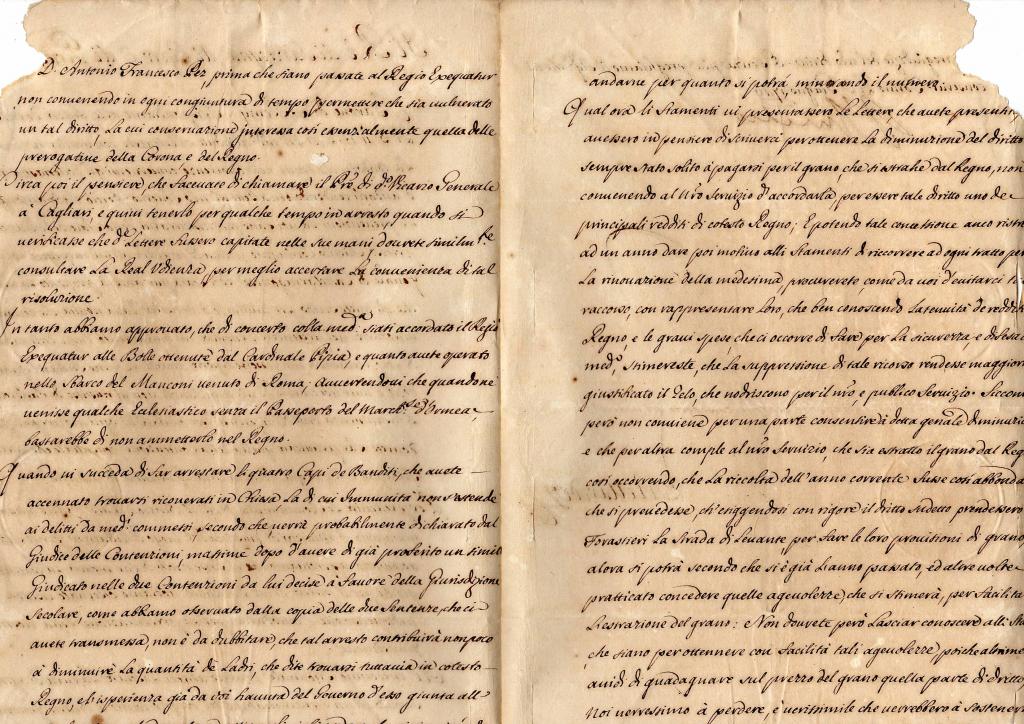 D. Antonio Francesco Pez prima che siano passate al Regio Exequatur
non convenendo in ogni congiuntura di tempo permettere che sia vulnerato
un tal diritto, La cui conservazione interessa così essenzialmente quella delle
prerogative della Corona e del Regno.
Circa poi il pensiere, che facevate di chiamare il Pro. di Vicario Generale
a Cagliari, e quivi tenerlo per qualche tempo in arresto, quando si
verificasse che de Lettere fussero capitate nelle sue mani dovrete similmte
consultare La Real Udienza, per meglio accertare La convenienza di tal
risoluzione.
In tanto abbiamo approvato, che di concerto colla meda siati accordato il Regio
Exequatur alle Bolle ottenute dal Cardinale Pipia, e quanto avete operato
nello sbarco del Manconi venuto di Roma, avvertendovi che quando ne
venisse qualche Eclesiastico senza il Passeporto del Marche d'Ormea,
bastarebbe di non ammetterlo nel Regno.
Quando vi succeda di far arrestare li quatro Capi de Banditi, che avete
accennato trovarsi ricoverati in Chiesa, La di cui Immunità non s'estende
ai delitti da medi commessi, secondo che verrà probabilmente dichiarato dal
Giudice delle Contenzioni, massime dopo d'avere di già proferito un simil
Giudicato nelle due Contenzioni da lui decise à favore della Giurisdizione
Secolare, come abbiamo osservato dalla copia delle due Sentenze, che ci
avete transmessa, non è da dubbitare, che tal arresto contribuirà non poco
à diminuire La quantità de Ladri, che dite trovarsi tuttavia in cotesto
Regno, e l'isperienza già da voi havuta del Governo d'esso giunta all'
andarne per quanto si potrà minorando il numero.
Qual ora li Stamenti vi presentassero Le Lettere, che avete presentito
avessero in pensiere di scriverci per ottenere La diminuzione del diritto
sempre stato solito à pagarsi per il grano che si estrahe dal Regno, non
convenendo al Nro Servizio d'accordarla, per esser tale diritto uno de
principali redditi di cotesto Regno; E potendo tale concessione anco ristretta
ad un anno dare poi motivo alli Stamenti di ricorrere ad ogni tratto per
La rinovazione della medesima, procurerete come da voi d'evitarci tal
raccorso, con rappresentare Loro, che ben conoscendo La tenuità de redditi
Regno, e le gravi spese che ci occorre di fare per La sicurezza e difesa
medo, stimereste, che La suppressione di tale ricorso rendesse maggiormente
giustificato il Zelo, che nodriscono per il nro, e publico Servizio. Siccome
però non conviene per una parte consentire à detta genale diminuzione
e che per altra comple al nro Servizio, che sia estratto il grano dal Regno
così occorrendo, che La riccolta dell'anno corrente fusse così abbondante
che si prevedesse, ch'esiggendosi con rigore il dritto sudetto prendessero
Forastieri La Strada di Levante, per fare le loro provisioni di grano
alora si potrà secondo che si è già L'anno passato, ed altre volte
pratticato concedere quelle agevolezze, che si stimerà, per facilitare
L'estrazione del grano: Non dovrete però Lasciar conoscere alli Stamenti
che siano per ottennere con facilità tali agevolezze, poiche altrimenti
avidi di guadagnare sul prezzo del grano quella parte di dritto
Noi verressimo à perdere, è verissimile che verrebbero à sostenere